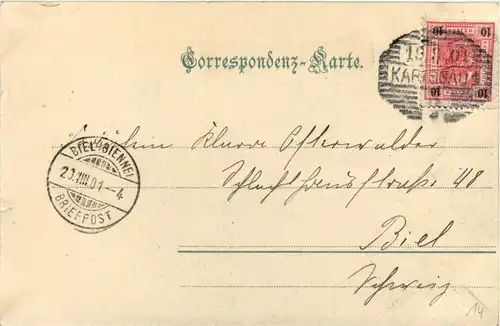 Correspondenz-Karte.
10 10
KARLSBAD
10 10
BIEL (BIENNE)
20.VIII.01.–4
BRIEFPOST
Fräulein Klara Osterwalder
Schlachthausstraße 48
Biel
Schweiz
14